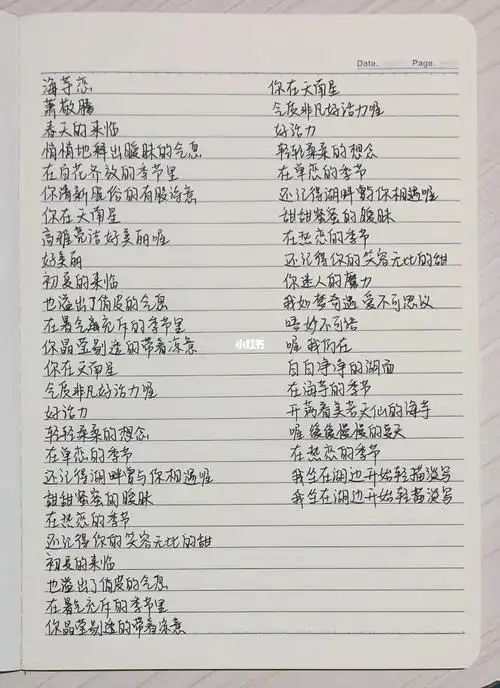 Date.
Page.
海芋恋
萧敬腾
春天的来临
悄悄地释出暧昧的气息
在百花齐放的季节里
你清新脱俗的有股诗意
你在天南星
高雅亮洁好美丽喔
好美丽
初夏的来临
也溢出了俏皮的气息
在暑气充斥的季节里
你晶莹剔透的带着凉意
你在天南星
气质非凡好活力喔
好活力
轻轻柔柔的想念
在单恋的季节
还记得湖畔曾与你相遇喔
甜甜蜜蜜的暧昧
在热恋的季节
还记得你的笑容无比的甜
初夏的来临
也溢出了俏皮的气息
在暑气充斥的季节里
你晶莹剔透的带着凉意
你在天南星
气质非凡好活力喔
好活力
轻轻柔柔的想念
在单恋的季节
还记得湖畔曾与你相遇喔
甜甜蜜蜜的暧昧
在热恋的季节
还记得你的笑容无比的甜
你迷人的魔力
我如梦奇遇 爱不可思议
唔妙不可语
喔 我们在
白白净净的湖面
在海芋的季节
开满着美若天仙的海芋
喔 缓缓慢慢的夏天
在热恋的季节
我坐在湖边开始轻描淡写
我坐在湖边开始轻描淡写
小红书